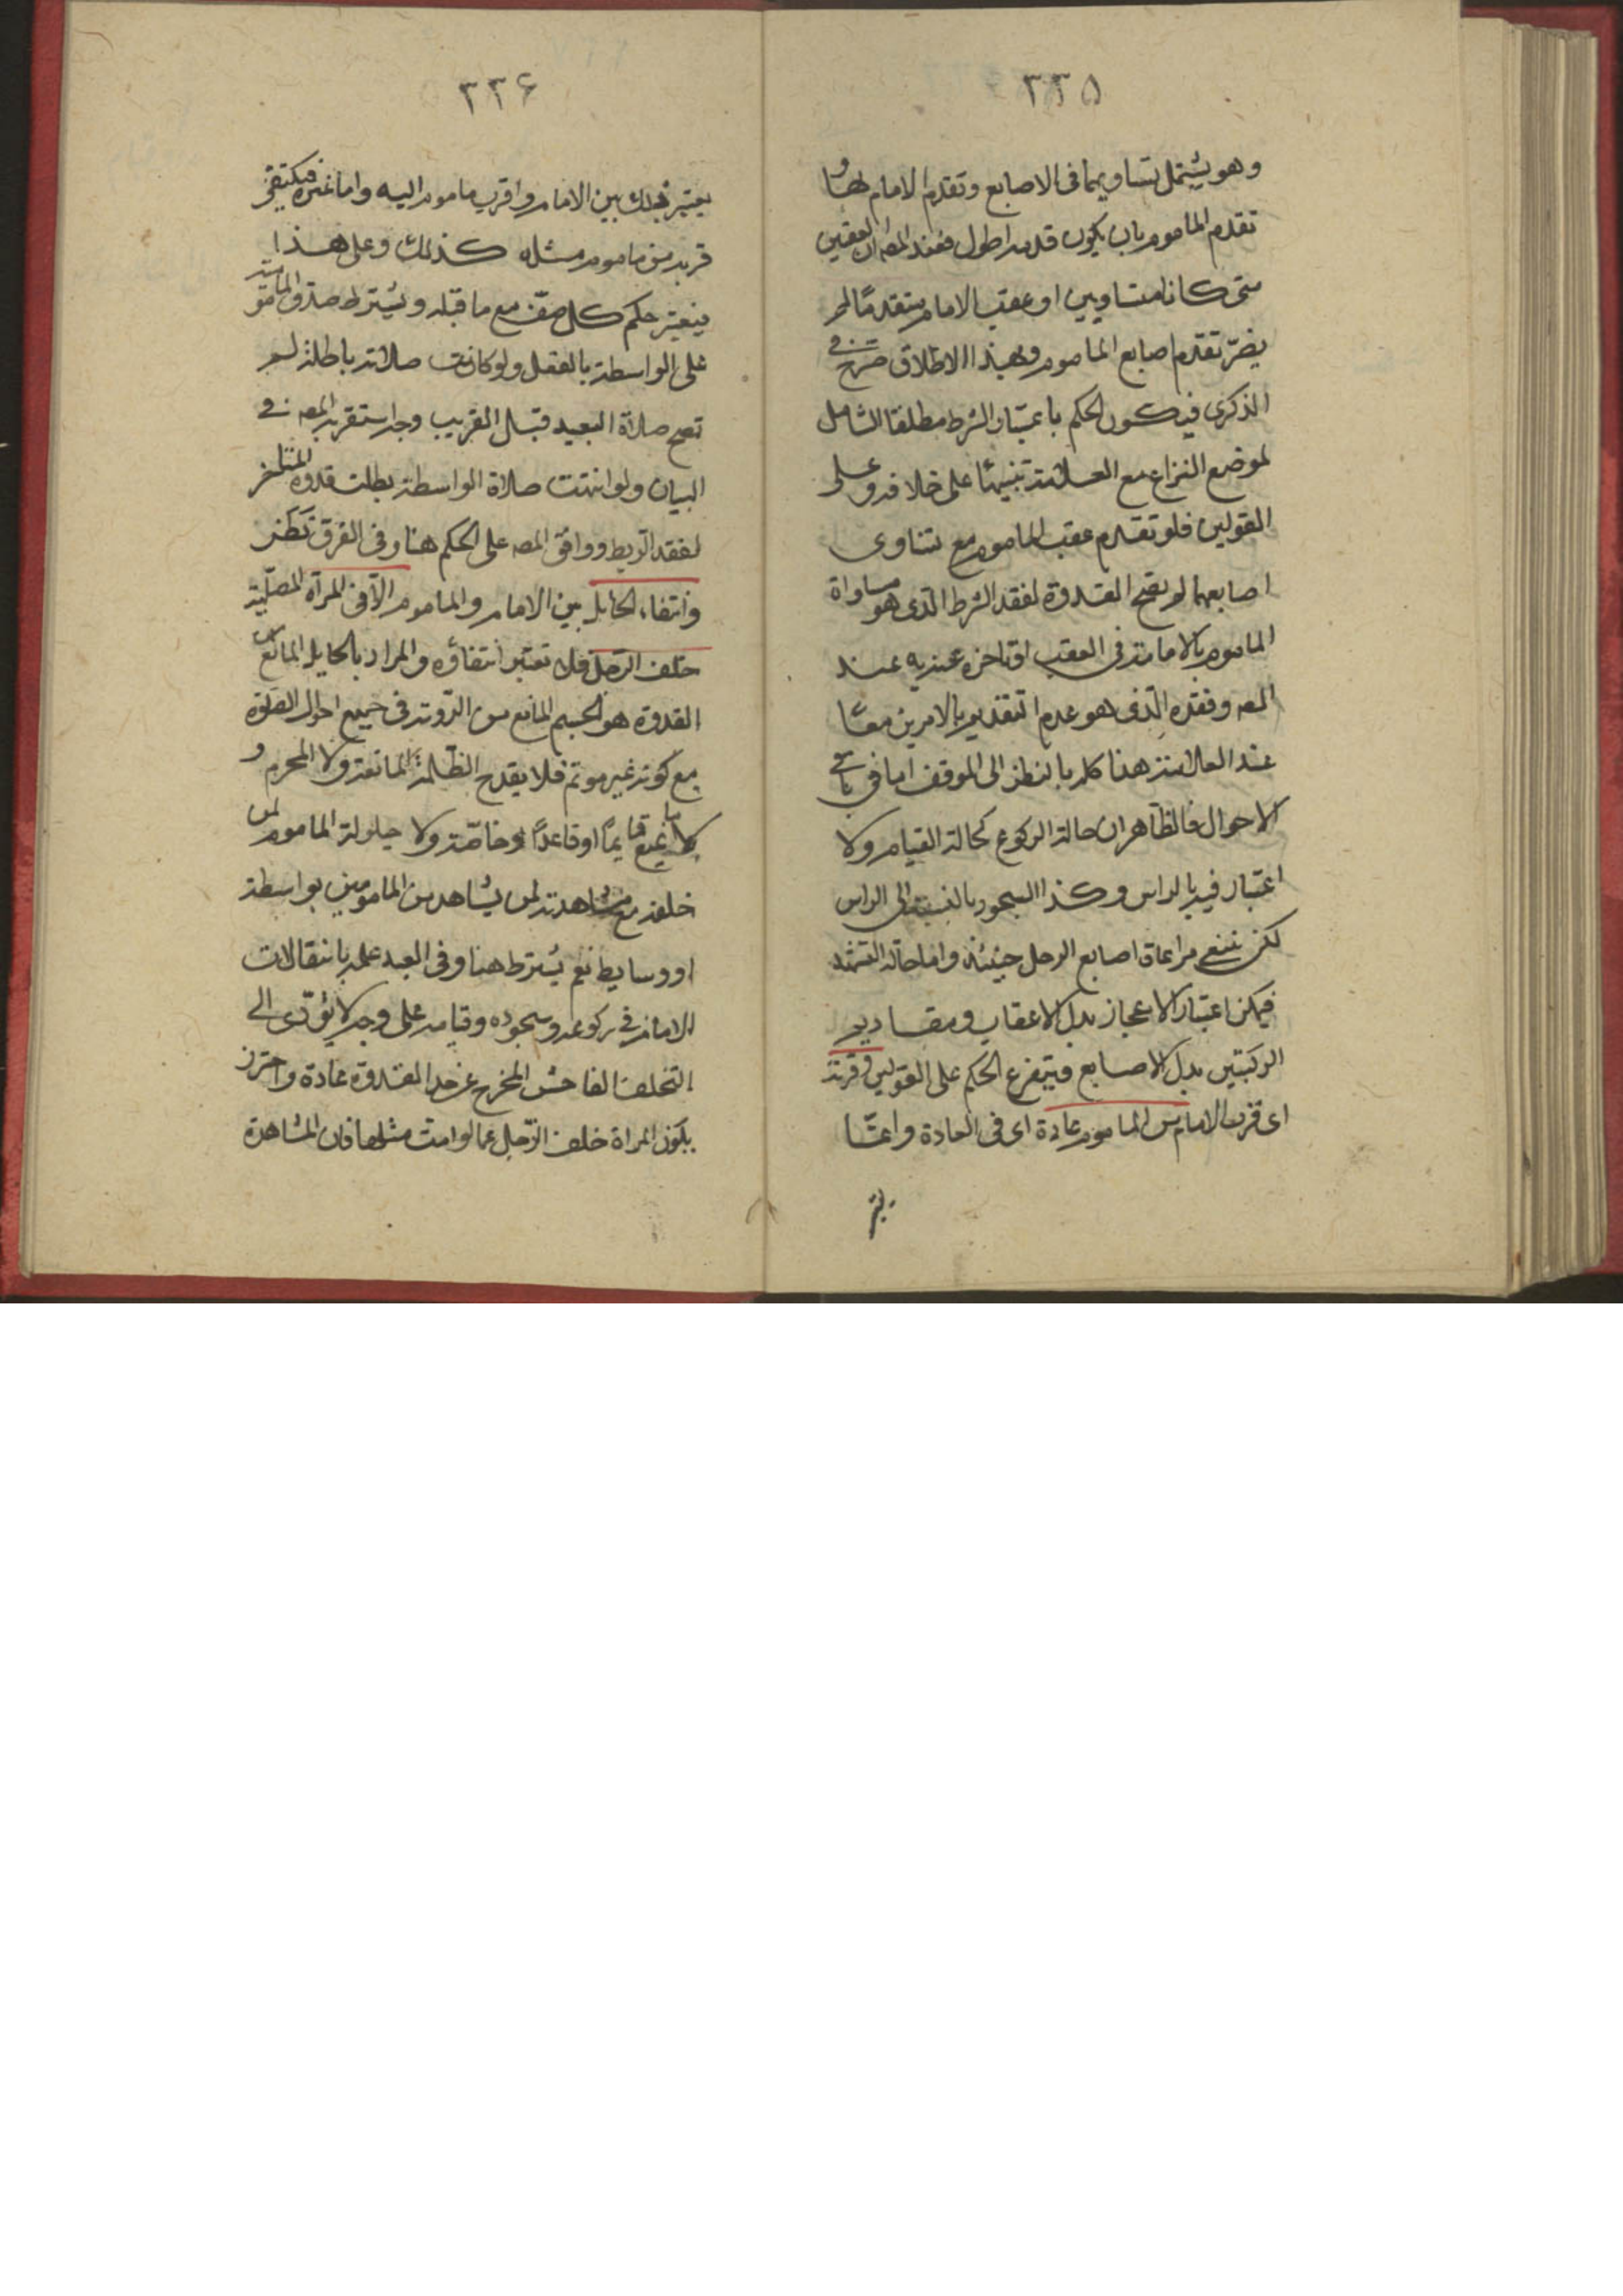 ٣٣٥
وهو يشتمل تساويهما فى الاصابع وتقدم الامام بها و
تقدم المأموم بان يكون قدمه اطول فعند المصه ان العقبين
متى كانا متساويين او عقب الامام متقدمًا لم
يضرّ تقدم اصابع المأموم وبهذا الاطلاق صرّح في
الذكرى فيكون الحكم باعتبار الشرط مطلقا الشامل
لموضع النزاع مع العلامة تنبيهًا على خلافه وعلى
القولين فلو تقدم عقب المأموم مع تساوى
اصابعهما لم يصح القدوة لفقد الشرط الذى هو مساواة
المأموم بالامامة فى العقب او تاخره عنه به عند
المصه وفقده الّذى هو عدم التقديم بالامرين معًا
عند العلامة هذا كله بالنظر الى الموقف اما فى باقى
الاحوال فالظاهر ان حالة الركوع كحالة القيام ولا
اعتبار فيه بالراس وكذا السجود بالنسبة الى الراس
لكن ينبغى مراعاة اصابع الرجل حينئذ واما حالة التشهد
فيمكن اعتبار الاعجاز بدل الاعقاب ومقاديم
الركبتين بدل الاصابع فيتفرع الحكم على القولين وقربه
اى قرب الامام من المأموم عادة اى فى العادة وانمّا
يعتبر
٣٣۶
يعتبر ذلك بين الامام واقرب مأموم اليه واما غيره فيكتفى
قربه من مأموم مثله كذلك وعلى هذا
فيعتبر حكم كل صفّ مع ما قبله ويشترط صدق المأمومية
على الواسطة بالفعل ولو كانت صلاته باطلة لم
تصح صلاة البعيد قبل القريب وجه استقربه المصه في
البيان ولو انتهت صلاة الواسطة بطلت قدوة المتأخر
لفقد الربط ووافق المصه على الحكم هنا وفى الفرق نظر
وانتفاء الحايل بين الامام والمأموم الّا فى المرأة المصلّية
خلف الرّجل فلا تعتبر انتفاؤه والمراد بالحايل المانع من
القدوة هو الجسم المانع من الرّوية فى جميع احوال الصلوة
مع كونه غير موتم فلا يقدح الظّلمة المانعة ولا المخرم و
لا ما يمنع قايمًا او قاعدًا خاصّة ولا حيلولة المأموم لمن
خلفه مع مشاهدته لمن يشاهد من المأمومين بواسطة
او وسايط نعم يشترط هنا وفى البعد علمه بانتقالات
الامام في ركوعه وسجوده وقيامه على وجه لا يؤدّى الى
التخلف الفاحش المخرج عن حد القدوة عادة واحترز
بكون المراة خلف الرّجل عما لو امت مثلها فان المشاهدة